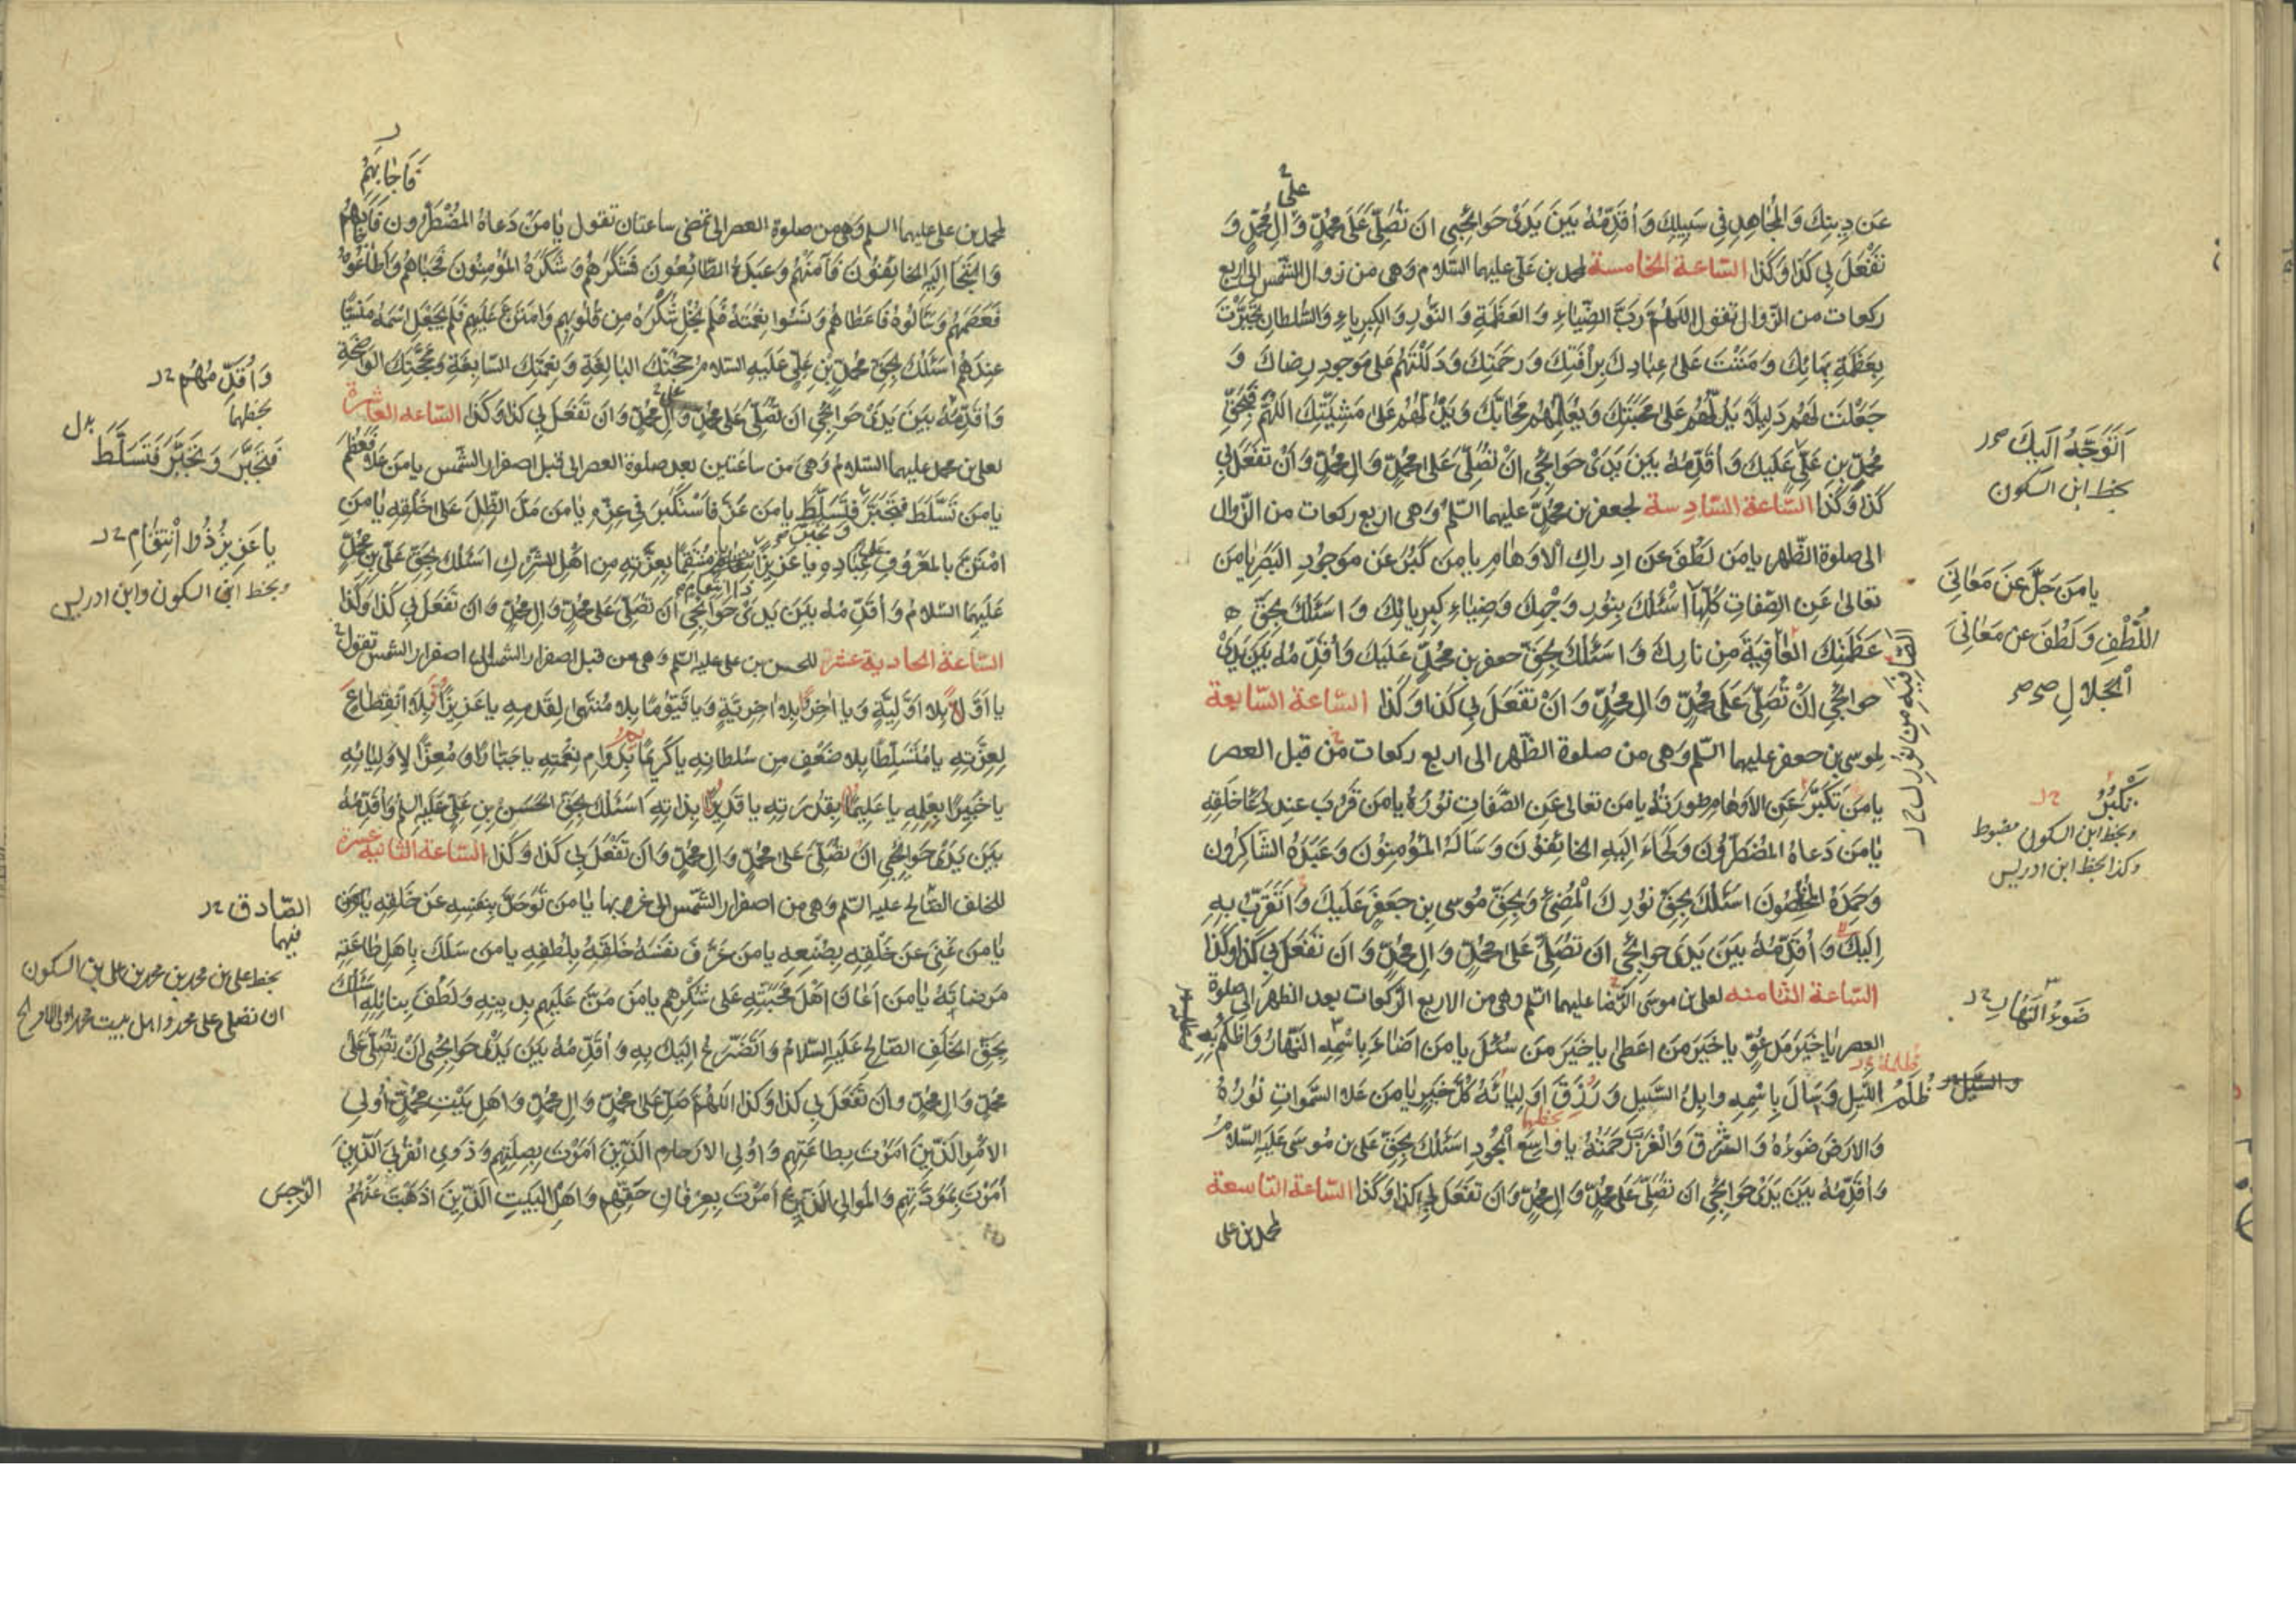 على
عَن دِينِكَ وَالْمُجَاهِدِ فِي سَبِيلِكَ وَأُقَدِّمُهُ بَيْنَ يَدَيْ حَوَائِجِي اَن تُصَلِّيَ عَلَى مُحَمَّدٍ وَآلِ مُحَمَّدٍ وَ
تَفْعَلَ بِي كَذَا وَكَذَا السّاعة الخامسة لمحمد بن علي عليهما السّلام وهى من زوال الشّمس الى اربع
ركعات من الزّوال تقول اللهُمَّ رَبَّ الضِّيَاءِ وَ العَظَمَةِ وَ النُّورِ وَ الكِبرِيَاءِ وَالسُّلطانِ تَجَبَّرْتَ
بِعَظَمَةِ بَهَائِكَ وَ مَنَنْتَ عَلىٰ عِبَادِكَ بِرَأفَتِكَ وَرَحْمَتِكَ وَدَلَلْتَهُم عَلى مَوجودِ رِضاكَ وَ
جَعَلْتَ لَهُم دَلِيلًا يَدُلُّهُم عَلى مَحَبَّتِكَ وَيُعَلِّمُهُم مَحَابَّكَ وَيَدُلُّهُم عَلى مَشِيَّتِكَ اللهُمَّ فَبِحَقِّ
مُحَمَّدِ بنِ عَلِيٍّ عَلَيكَ وَأُقَدِّمُهُ بَينَ يَدَى حَوَائِجِى اَنْ تُصَلِّيَ عَلى مُحَمَّدٍ وَآلِ مُحَمَّدٍ وَاَنْ تَفْعَلَ بِي
كَذَا وَكَذَا السّاعَة السّادِسة لجعفر بن مُحمّدٍ عليهما السّلم وهى اربع ركعات من الزّوال
الى صلوة الظّهر يامن لَطُفَ عَن اِدراكِ الاَوهامِ يامن كَبُرَ عَن مَوجُودِ البَصَرِ يامن
تعالىٰ عَنِ الصِّفاتِ كُلِّهَا اَسْئَلُكَ بِنُورِ وَجْهِكَ وَضِياءِ كِبرِيائِكَ وَ اَسئَلُكَ بِحَقِّ
عَظَمَتِكَ العافِيَةَ مِن نارِكَ وَاَسئَلُكَ بِحَقِّ جعفر بن مُحَمَّدٍ عَلَيكَ وَأُقَدِّمُهُ بَينَ يَدَيْ
حوائجي اَنْ تُصَلِّيَ عَلى مُحَمَّدٍ وَآلِ مُحَمَّدٍ وَاَنْ تَفْعَلَ بِي كَذا وَكَذا السّاعةُ السّابعة
لموسى بن جعفر عليهما السّلم وهى من صلوة الظّهر الى اربع ركعات من قبل العصر
يامَن تَكَبَّرَ عَنِ الاَوهام صُورَتُه يامن تعالى عَنِ الصِّفاتِ نُورُه يامن قَرُبَ عِندَ دُعاءِ خَلقِه
يامَن دَعاهُ المُضطَرُّونَ وَلَجَاءَ اِلَيهِ الخائِفُونَ وَسَالَهُ المُؤمِنُونَ وَعَبَدَهُ الشّاكِرُونَ
وَحَمِدَهُ المُخلِصُونَ اَسئَلُكَ بِحَقِّ نُورِكَ المُضِئِ وَبِحَقِّ مُوسى بنِ جَعفَرٍ عَلَيكَ وَاَتَقَرَّبُ بِهِ
اِلَيكَ وَأُقَدِّمُهُ بَينَ يَدَى حوائجي اَن تُصَلِّيَ عَلى مُحَمَّدٍ وَآلِ مُحَمَّدٍ وَاَن تَفعَلَ بِي كَذا وَكَذا
السّاعة الثّامنه لعلى بن موسَى الرِّضا عليهما السّلم وهى من الاربع الرّكعات بعد الظهر الى صلوة
العصر ياخَيرَ مَدعُوٍّ ياخَيرَ مَن اَعطى ياخَيرَ مَن سُئِلَ يامن اَضاءَ بِاسْمِهِ النَّهارُ وَاَظلَمَ بِهِ
ظُلَمُ اللَّيلِ وَسَالَ بِاسْمِهِ وابِلُ السَّيلِ وَرَزَقَ اَولِياءَهُ كُلَّ خَيرٍ يامن عَلا السَّمواتِ نُورُهُ
وَالاَرضَ ضَوءُهُ وَالشَّرقَ وَالغَربَ رَحمَتُهُ يا واسِعَ الجُودِ اَسئَلُكَ بِحَقِّ عَلى بنِ مُوسَى عَلَيهِ السّلام
وَأُقَدِّمُهُ بَينَ يَدَى حَوائِجي اَن تُصَلِّيَ عَلى مُحَمَّدٍ وَآلِ مُحَمَّدٍ وَاَن تَفعَلَ بِي كَذا وَكَذا السّاعَة التاسعة
لمحمد بن على
اَتَوَجَّهُ اِلَيكَ
بخط ابن السكون
يا مَن جَلَّ عَن مَعانِي
اللُّطفِ وَلَطُفَ عَن مَعانِي
الجَلالِ
تَكبُرُ
وبخط ابن السكون مضبوط
وكذا بخط ابن ادريس
ضَوءُ النَّهارِ
والسَّيل
فَاَجابَهُم
لمحمد بن على عليهما السلم وهى من صلوة العصر الى تمضى ساعتان تقول يامَن دَعاهُ المُضطَرُّون فَاَجابَهُم
وَالتَجَا اِلَيهِ الخائِفُونَ فَآمَنَهُم وَعَبَدَهُ الطّائِعُونَ فَشَكَرَهُم وَشَكَرَهُ المُؤمِنُونَ فَحَباهُم وَاَطاعُوهُ
فَعَصَمَهُم وَسَالُوهُ فَاَعطاهُم وَنَسُوا نِعمَتَهُ فَلَم يُخلِ شُكرَهُ مِن قُلُوبِهِم وَامتَنَّ عَلَيهِم فَلَم يَجعَلِ اسمَهُ مَنسِيّا
عِندَهُم اَسئَلُكَ بِحَقِّ مُحَمَّدِ بنِ عَلِيٍّ عَلَيهِ السّلام حُجَّتِكَ البالِغَةِ وَنِعمَتِكَ السّابِغَةِ وَمَحَجَّتِكَ الواضِحَةِ
وَاُقَدِّمُهُ بَينَ يَدَى حَوائِجي اَن تُصَلِّيَ عَلى مُحَمَّدٍ وَآلِ مُحَمَّدٍ وَاَن تَفعَلَ بِي كَذا وَكَذا السّاعه العاشرة
لعلى بن محمد عليهما السّلام وَهى من ساعتين بعد صلوة العصر الى قبل اصفرار الشّمس يامن عَلا فَعَظُمَ
يامن تَسَلَّطَ فَتَجَبَّرَ وَتَجَبَّرَ فَتَسَلَّطَ يامن عَزَّ فَاستَكبَرَ في عِزِّهِ يامن مَدَّ الظِّلَّ عَلى خَلقِهِ يامَنِ
امتَنَّ بِالمَعرُوفِ عَلى عِبادِهِ يا عَزِيزًا مُنتَقِمًا بِعِزَّتِهِ مِن اَهلِ الشِّركِ اَسئَلُكَ بِحَقِّ عَلِيِّ بنِ مُحَمَّدٍ
عَلَيهِمَا السّلام وَاُقَدِّمُهُ بَينَ يَدَى حَوائِجي اَن تُصَلِّيَ عَلى مُحَمَّدٍ وَآلِ مُحَمَّدٍ وَاَن تَفعَلَ بِي كَذا وَكَذا
السّاعة الحادية عشر للحسن بن على عليه السّلم وهى من قبل اصفرار الشمس الى اصفرار الشمس تقول
يا اَوَّل بِلا اَوَّلِيَّةٍ وَيا اخِر بِلا اخِرِيَّةٍ وَيا قَيُّومًا بِلا مُنتَهى لِقِدَمِهِ يا عَزِيزًا بِلا اَنقِطاعٍ
لِعِزَّتِهِ يا مُتَسَلِّطًا بِلا ضَعفٍ مِن سُلطانِهِ يا كَرِيمًا بِدَوامِ نِعمَتِهِ يا جَبّارًا وَ مُعِزًّا لِاَولِيائِهِ
يا خَبِيرًا بِعِلمِهِ يا عَلِيمًا بِقُدرَتِهِ يا قَدِيرًا بِذاتِهِ اَسئَلُكَ بِحَقِّ الحَسَنِ بنِ عَلِيٍّ عَلَيهِ السلم وَاُقَدِّمُهُ
بَينَ يَدَى حَوائِجي اَن تُصَلِّيَ عَلى مُحَمَّدٍ وَآلِ مُحَمَّدٍ وَاَن تَفعَلَ بِي كَذا وَكَذا السّاعة الثّانيه عشرة
للخلف الصّالح عليه السّلم وهى من اصفرار الشّمس الى غروبها يامن تَوَحَّدَ بِنَفسِهِ عَن خَلقِهِ
يامن غَنِيَ عَن خَلقِهِ بِصُنعِهِ يامن عَرَّفَ نَفسَهُ خَلقَهُ بِلُطفِهِ يامن سَلَكَ بِاَهلِ طاعَتِهِ
مَرضاتَهُ يامن اَعانَ اَهلَ مَحَبَّتِهِ عَلى شُكرِهِ يامَن مَنَّ عَلَيهِم بِدِينِهِ وَلَطُفَ بِنائِلِهِ اَسئَلُكَ
بِحَقِّ الخَلَفِ الصّالِحِ عَلَيهِ السّلام وَاَتَضَرَّعُ اِلَيكَ بِهِ وَاُقَدِّمُهُ بَينَ يَدَى حَوائِجي اَن تُصَلِّيَ عَلى
مُحَمَّدٍ وَآلِ مُحَمَّدٍ وَاَن تَفعَلَ بِي كَذا وَكَذا اللهُمَّ صَلِّ عَلى مُحَمَّدٍ وَآلِ مُحَمَّدٍ وَاَهلِ بَيتِ مُحَمَّدٍ اُولِي
الاَمرِ الَّذِينَ اَمَرتَ بِطاعَتِهِم وَاُولِي الاَرحامِ الَّذِينَ اَمَرتَ بِصِلَتِهِم وَذَوِي القُربى الَّذِينَ
اَمَرتَ بِمَوَدَّتِهِم وَالمَوالِي الَّذِينَ اَمَرتَ بِعِرفانِ حَقِّهِم وَاَهلِ البَيتِ الَّذِينَ اَذهَبتَ عَنهُمُ
الرّجسَ
وَاُقَدِّمُهُم
بخطهما
فَتَجَبَّرَ وَتَجَبَّرَ فَتَسَلَّطَ بدل
يا عَزِيزُ ذُو انتِقامٍ
وبخط ابن السكون وابن ادريس
الصّادق
فيهما
بخط على بن محمد بن محمد بن على بن السكون
ان تصلى على محمد واهل بيت محمد